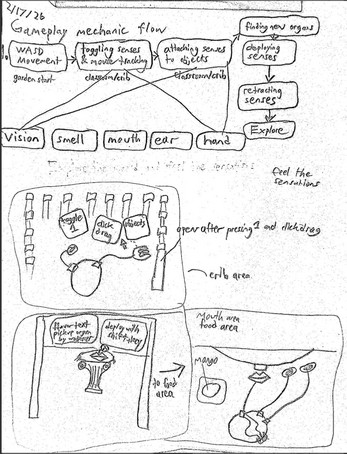 2/17/26
Gameplay mechanic flow
1.
WASD
Movement
garden start
toggling senses
& mouse tracking
classroom/crib
attaching senses
to objects
classroom/crib
finding new organs
deploying
senses
retracting
senses
Explore
Vision
smell
mouth
ear
hand
feel the
sensations
toggle
1
click
drag
objects
open after pressing 1 and click drag
crib area
flavor text
pickup organ
deploy with
shift + key
to food
area
Mouth area
food area
mango